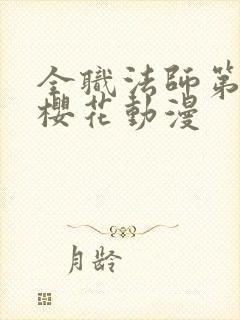 全職法師第
櫻花動漫
月齡